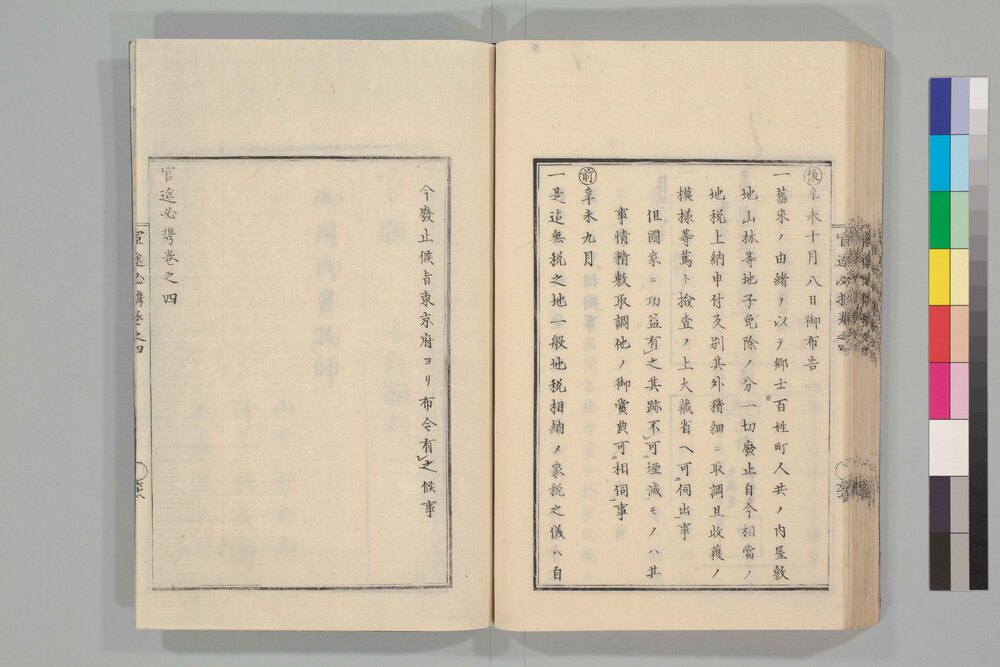 後 辛未十月八日御布告
一舊來ノ由緒ヲ以テ郷士百姓町人共ノ内屋敷
地山林等地子免除ノ分一切廢止自今相當ノ
地税上納申付及別其外精細ニ取調且收穫ノ
模樣等篤ト撿査ノ上大藏省ヘ可伺出事
但國家ニ功益有之其跡不可堙滅モノハ其
事情精敷取調他ノ御賞典可相伺事
前 辛未九月
一是迄無税之地一般地税相納メ家税之儀ハ自
今廢止候旨東京府ヨリ布令有之候事
官途必携巻之四
官途必携巻之四